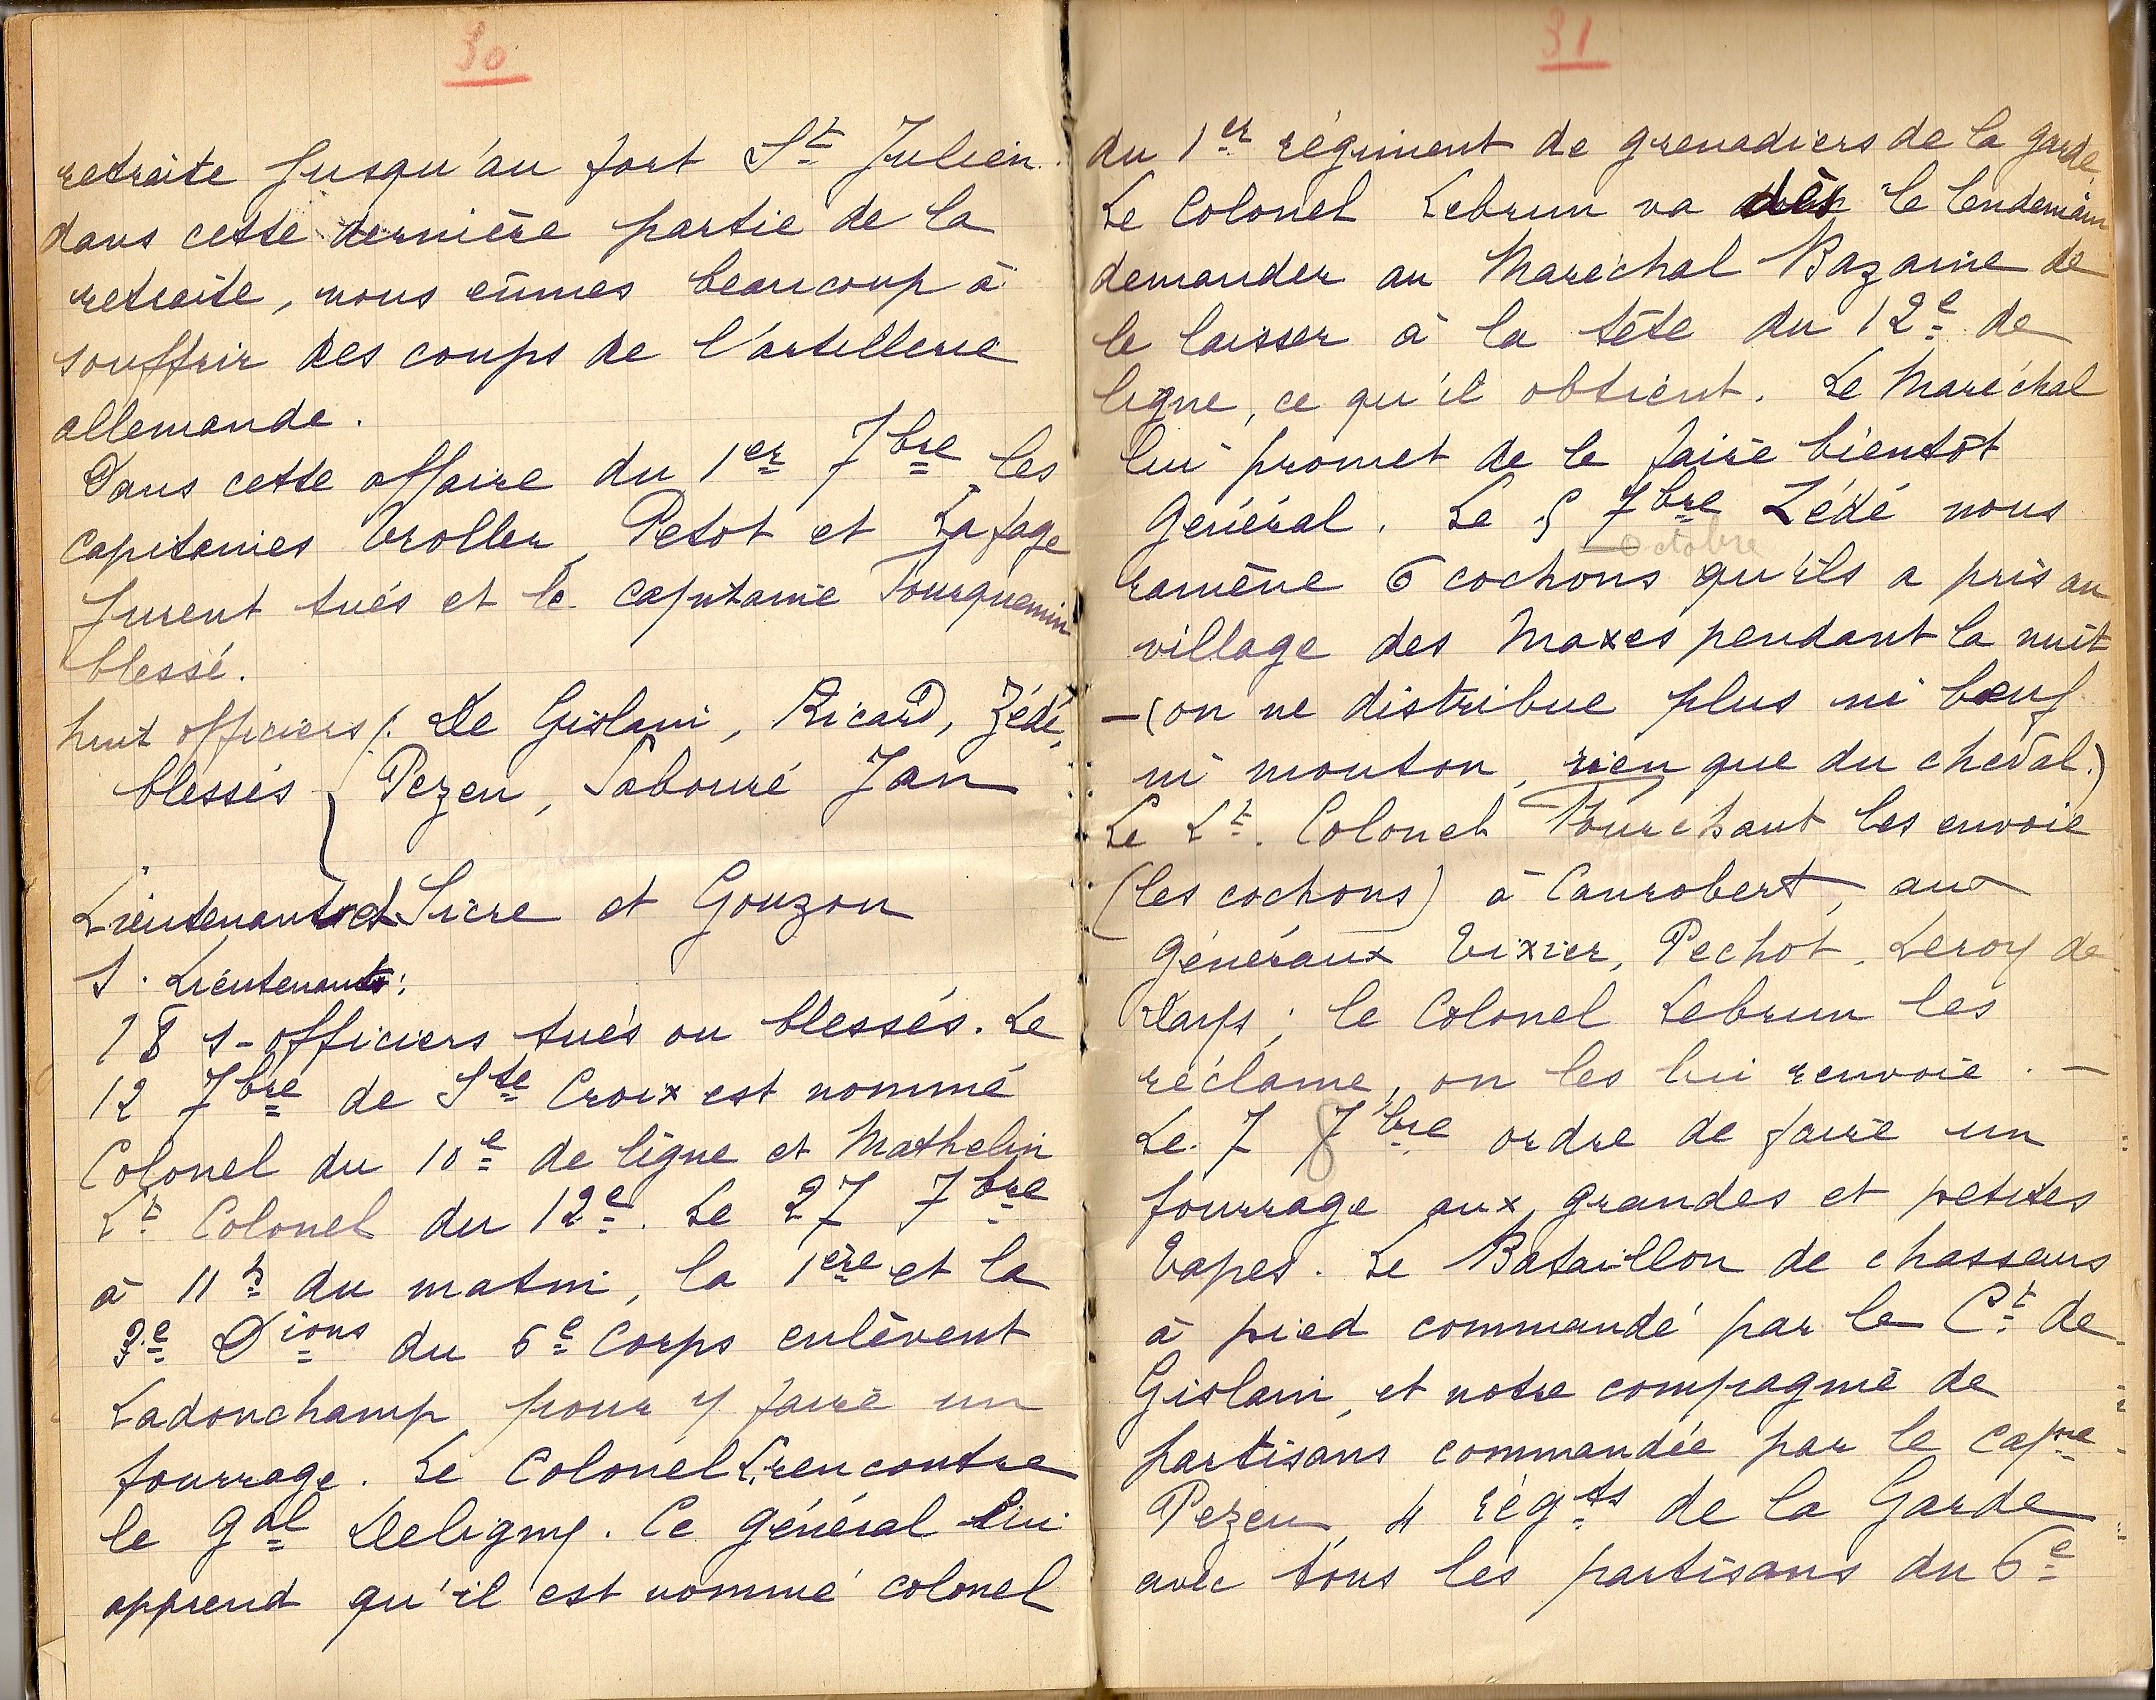 30
retraite jusqu'au fort St Julien.
dans cette dernière partie de la
retraite, nous eûmes beaucoup à
souffrir des coups de l'artillerie
allemande.
Dans cette affaire du 1er 7bre les
capitaines Vroller, Petot et Lafage
furent tués et le capitaine Fourquemin
blessé.
huit officiers : De Gislain, Ricard, Zédé,
blessés { Pezeu, Sabouré Jan
Lieutenants et Sicre et Gouzon
S. Lieutenants :
18 s-officiers tués ou blessés. Le
12 7bre de Ste Croix est nommé
Colonel du 10e de ligne et Mathelin
Lt Colonel du 12e. Le 27 7bre
à 11h du matin, la 1ère et la
3e Dions du 6e Corps enlèvent
Ladonchamp pour y faire un
fourrage. Le Colonel L. rencontre
le Gal Deligny. Ce général lui
apprend qu'il est nommé colonel
31
du 1er régiment de grenadiers de la garde.
Le Colonel Lebrun va dès le lendemain
demander au Maréchal Bazaine de
le laisser à la tête du 12e de
ligne, ce qu'il obtient. Le Maréchal
lui promet de le faire bientôt
Général. Le 5 7bre Zédé nous
octobre
ramène 6 cochons qu'ils a pris au
village des Maxes pendant la nuit
-(on ne distribue plus ni bœuf
ni mouton, rien que du cheval.)
Le Lt. Colonel Fourchaut les envoie
(les cochons) à Canrobert, aux
Généraux Tixier, Pechot, Leroy de
Days ; le Colonel Lebrun les
réclame, on les lui renvoie. -
Le 7 7bre ordre de faire un
fourrage aux grandes et petites
Tapes. Le Bataillon de chasseurs
à pied commandé par le Ct de
Gislain, et notre compagnie de
partisans commandée par le Capne
Pezeu, 4 régts de la Garde
avec tous les partisans du 6e